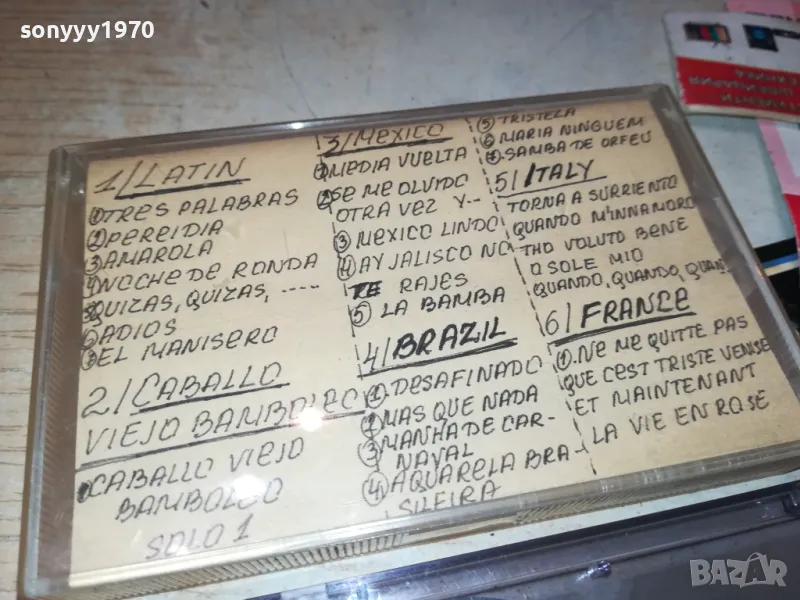 sonyyy1970
1/ LATIN
① TRES PALABRAS
② PEREIDIA
③ AMAROLA
④ NOCHE DE RONDA
⑤ QUIZAS, QUIZAS, -----
⑥ ADIOS
⑦ EL MANISERO
2/ CABALLO
VIEJO BAMBOLEO
① CABALLO VIEJO
BAMBOLEO
SOLO 1
3/ MEXICO
① MEDIA VUELTA
② SE ME OLVIDO
OTRA VEZ Y--
③ MEXICO LINDO
④ AY JALISCO NO
TE RAJES
⑤ LA BAMBA
4/ BRAZIL
① DESAFINADO
② MAS QUE NADA
③ MANHA DE CAR-
NAVAL
④ AQUARELA BRA-
SILEIRA
⑤ TRISTELA
⑥ MARIA NINGUEM
⑦ SAMBA DE ORFEU
5/ ITALY
TORNA A SURRIENTO
QUANDO M'INNAMORO
THO VOLUTO BENE
O SOLE MIO
QUANDO, QUANDO, QUAN
6/ FRANCE
①. NE ME QUITTE PAS
QUE C'EST TRISTE VENISE
ET MAINTENANT
LA VIE EN ROSE
BAZAR